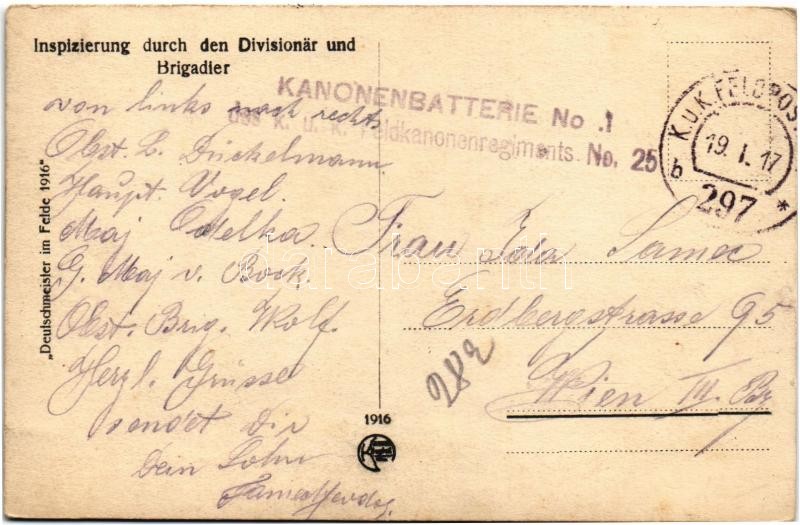 Inspizierung durch den Divisionär und
Brigadier
von links nach rechts
Obst. L. Dückelmann
Haupt. Vogel.
Maj Odelka.
G. Maj v. Bock.
Obst. Brig. Wolf.
Herzl. Grüsse
sendet Dir
Dein Sohn
"Deutschmeister im Felde 1916"
KANONENBATTERIE No .1
des k. u. k. Feldkanonenregiments No. 25
K.u.K. FELDPOST
19. I. 17
b 297 *
Frau Ida
Erdbergstrasse 95
Wien III. Bz
282
1916
darabanth